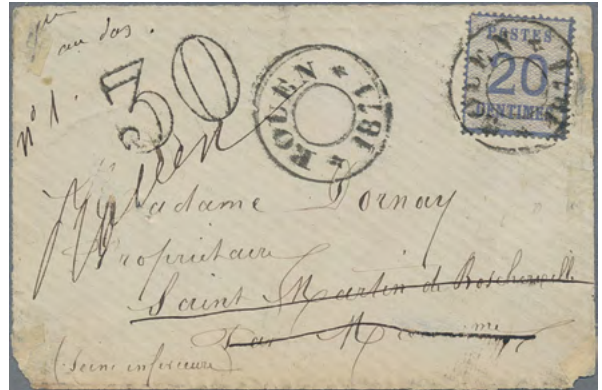 au dos.
n° 1.
30
ROUEN * 1871 *
POSTES
20
CENTIMES
ROUEN * 1871 *
Madame Dornay
Propriétaire
Saint Martin de Boscherville
Par
(Seine inférieure)